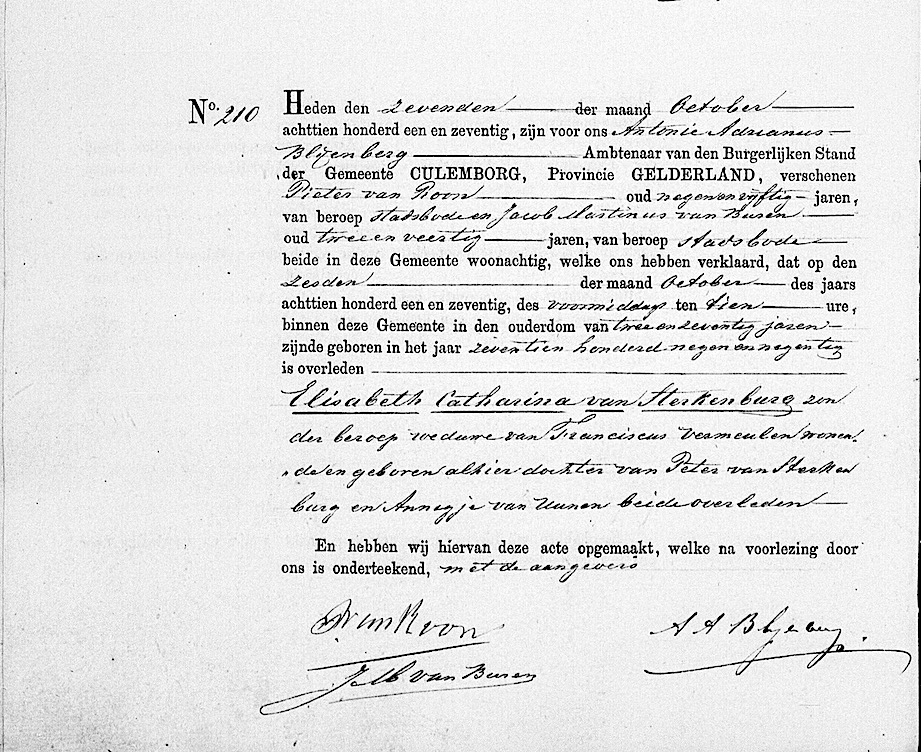 No. 210
Heden den zevenden der maand October
achttien honderd een en zeventig, zijn voor ons Antonie Adrianus
Blijenberg Ambtenaar van den Burgerlijken Stand
der Gemeente CULEMBORG, Provincie GELDERLAND, verschenen
Pieter van Roon oud negenenvijftig jaren,
van beroep stadsbode en Jacob Martinus van Buren
oud twee en veertig jaren, van beroep stadsbode
beide in deze Gemeente woonachtig, welke ons hebben verklaard, dat op den
zesden der maand October des jaars
achttien honderd een en zeventig, des voormiddags ten tien ure,
binnen deze Gemeente in den ouderdom van twee en zeventig jaren
zijnde geboren in het jaar zeventien honderd negen en negentig
is overleden
Elisabeth Catharina van Sterkenburg zon
der beroep weduwe van Franciscus Vermeulen wonen
de en geboren alhier dochter van Peter van Sterken
burg en Annegje van Uunen beide overleden
En hebben wij hiervan deze acte opgemaakt, welke na voorlezing door
ons is onderteekend, met de aangevers
P van Roon
A A Blijenberg
J M van Buren